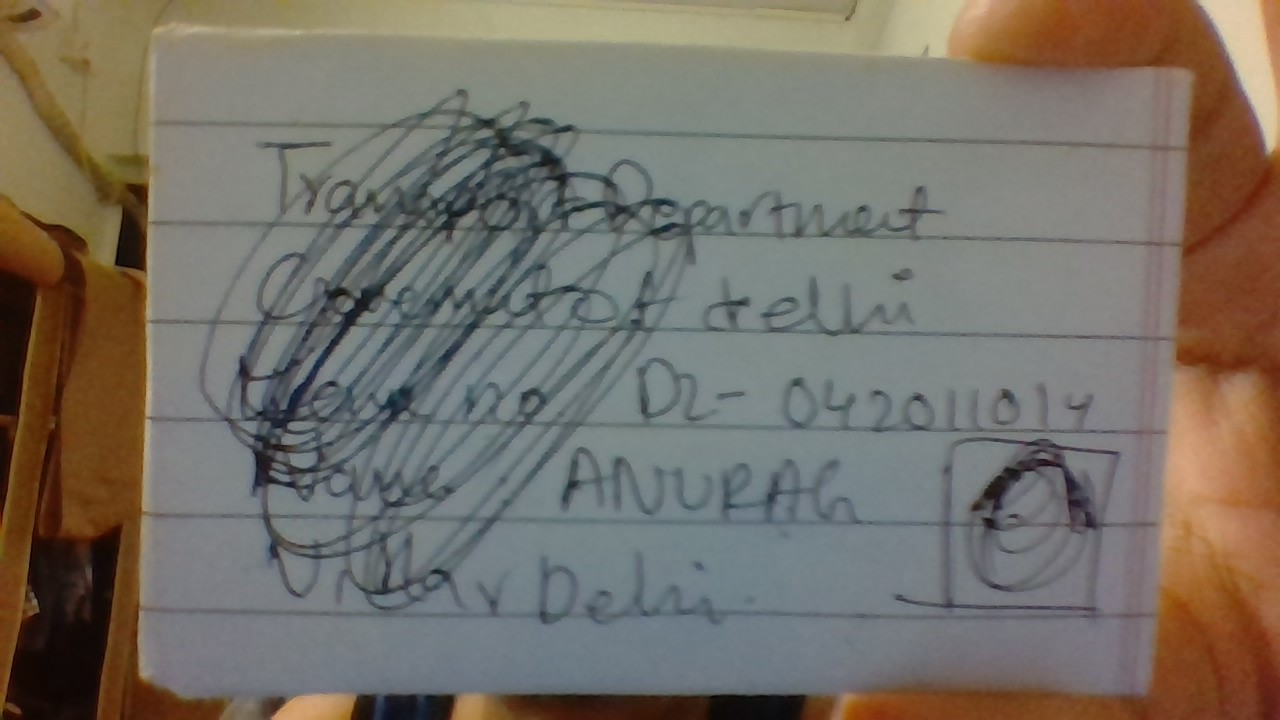 Transport Department
Goverment of delhi
no. D2- 042011014
Name ANURAG
Vihar Delhi.